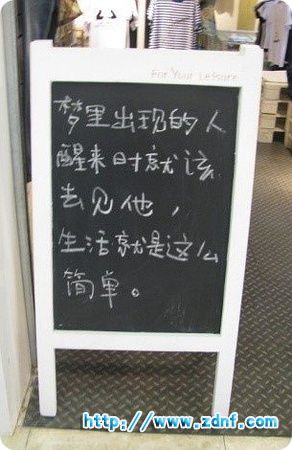 For Your Leisure
梦里出现的人
醒来时就该
去见他，
生活就是这么
简单。
http://www.zdnf.com